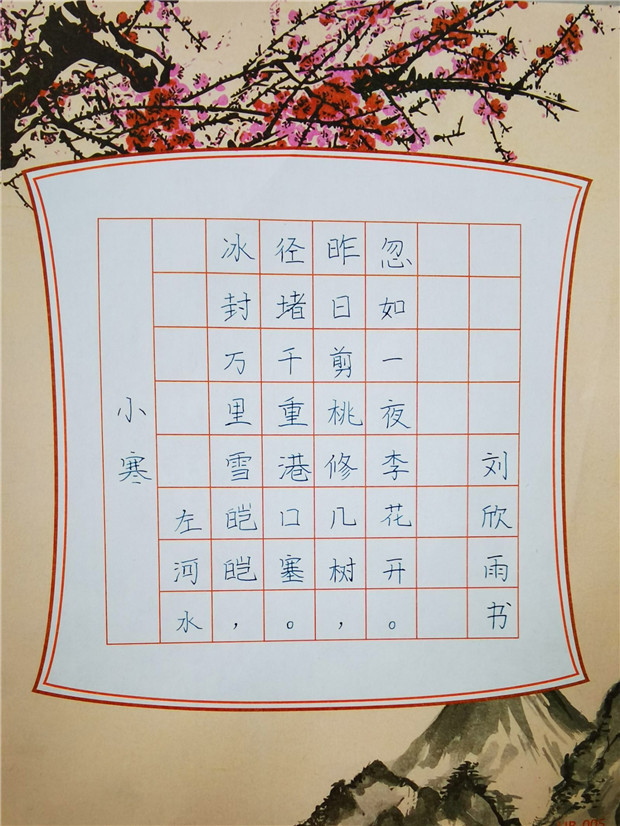 小寒
左河水
冰封万里雪皑皑，
径堵千重港口塞。
昨日剪桃修几树，
忽如一夜李花开。
刘欣雨书